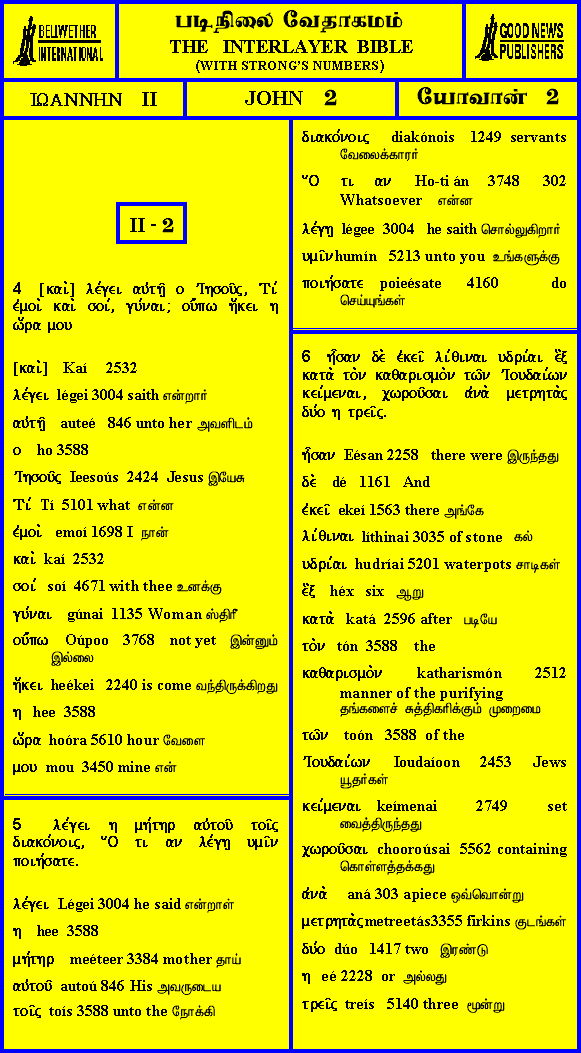 BELLWETHER
INTERNATIONAL
படிநிலை வேதாகமம்
THE INTERLAYER BIBLE
(WITH STRONG'S NUMBERS)
GOOD NEWS
PUBLISHERS
ΙΩΑΝΝΗΝ II
JOHN 2
யோவான் 2
II - 2
4 [καὶ] λέγει αὐτῇ ο Ἰησοῦς, Τί
ἐμοὶ καὶ σοί, γύναι; οὔπω ἥκει η
ὥρα μου
[καὶ] Kaí 2532
λέγει légei 3004 saith என்றார்
αὐτῇ auteé 846 unto her அவளிடம்
ο ho 3588
Ἰησοῦς Ieesoús 2424 Jesus இயேசு
Τί Tí 5101 what என்ன
ἐμοὶ emoí 1698 I நான்
καὶ kaí 2532
σοί soí 4671 with thee உனக்கு
γύναι gúnai 1135 Woman ஸ்திரீ
οὔπω Oúpoo 3768 not yet இன்னும்
இல்லை
ἥκει heékei 2240 is come வந்திருக்கிறது
η hee 3588
ὥρα hoóra 5610 hour வேளை
μου mou 3450 mine என்
5 λέγει η μήτηρ αὐτοῦ τοῖς
διακόνοις, Ὅ τι αν λέγῃ υμῖν
ποιήσατε.
λέγει Légei 3004 he said என்றாள்
η hee 3588
μήτηρ meéteer 3384 mother தாய்
αὐτοῦ autoú 846 His அவருடைய
τοῖς toís 3588 unto the நோக்கி
διακόνοις diakónois 1249 servants
வேலைக்காரர்
Ὅ τι αν Ho-ti án 3748 302
Whatsoever என்ன
λέγῃ légee 3004 he saith சொல்லுகிறார்
υμῖν humín 5213 unto you உங்களுக்கு
ποιήσατε poieésate 4160 do
செய்யுங்கள்
6 ἦσαν δὲ ἐκεῖ λίθιναι υδρίαι ἓξ
κατὰ τὸν καθαρισμὸν τῶν Ἰουδαίων
κείμεναι, χωροῦσαι ἀνὰ μετρητὰς
δύο η τρεῖς.
ἦσαν Eésan 2258 there were இருந்தது
δὲ dé 1161 And
ἐκεῖ ekeí 1563 there அங்கே
λίθιναι líthinai 3035 of stone கல்
υδρίαι hudríai 5201 waterpots சாடிகள்
ἓξ héx six ஆறு
κατὰ katá 2596 after படியே
τὸν tón 3588 the
καθαρισμὸν katharismón 2512
manner of the purifying
தங்களைச் சுத்திகரிக்கும் முறைமை
τῶν toón 3588 of the
Ἰουδαίων Ioudaíoon 2453 Jews
யூதர்கள்
κείμεναι keímenai 2749 set
வைத்திருந்தது
χωροῦσαι chooroúsai 5562 containing
கொள்ளத்தக்கது
ἀνὰ aná 303 apiece ஒவ்வொன்று
μετρητὰς metreetás3355 firkins குடங்கள்
δύο dúo 1417 two இரண்டு
η eé 2228 or அல்லது
τρεῖς treís 5140 three மூன்று